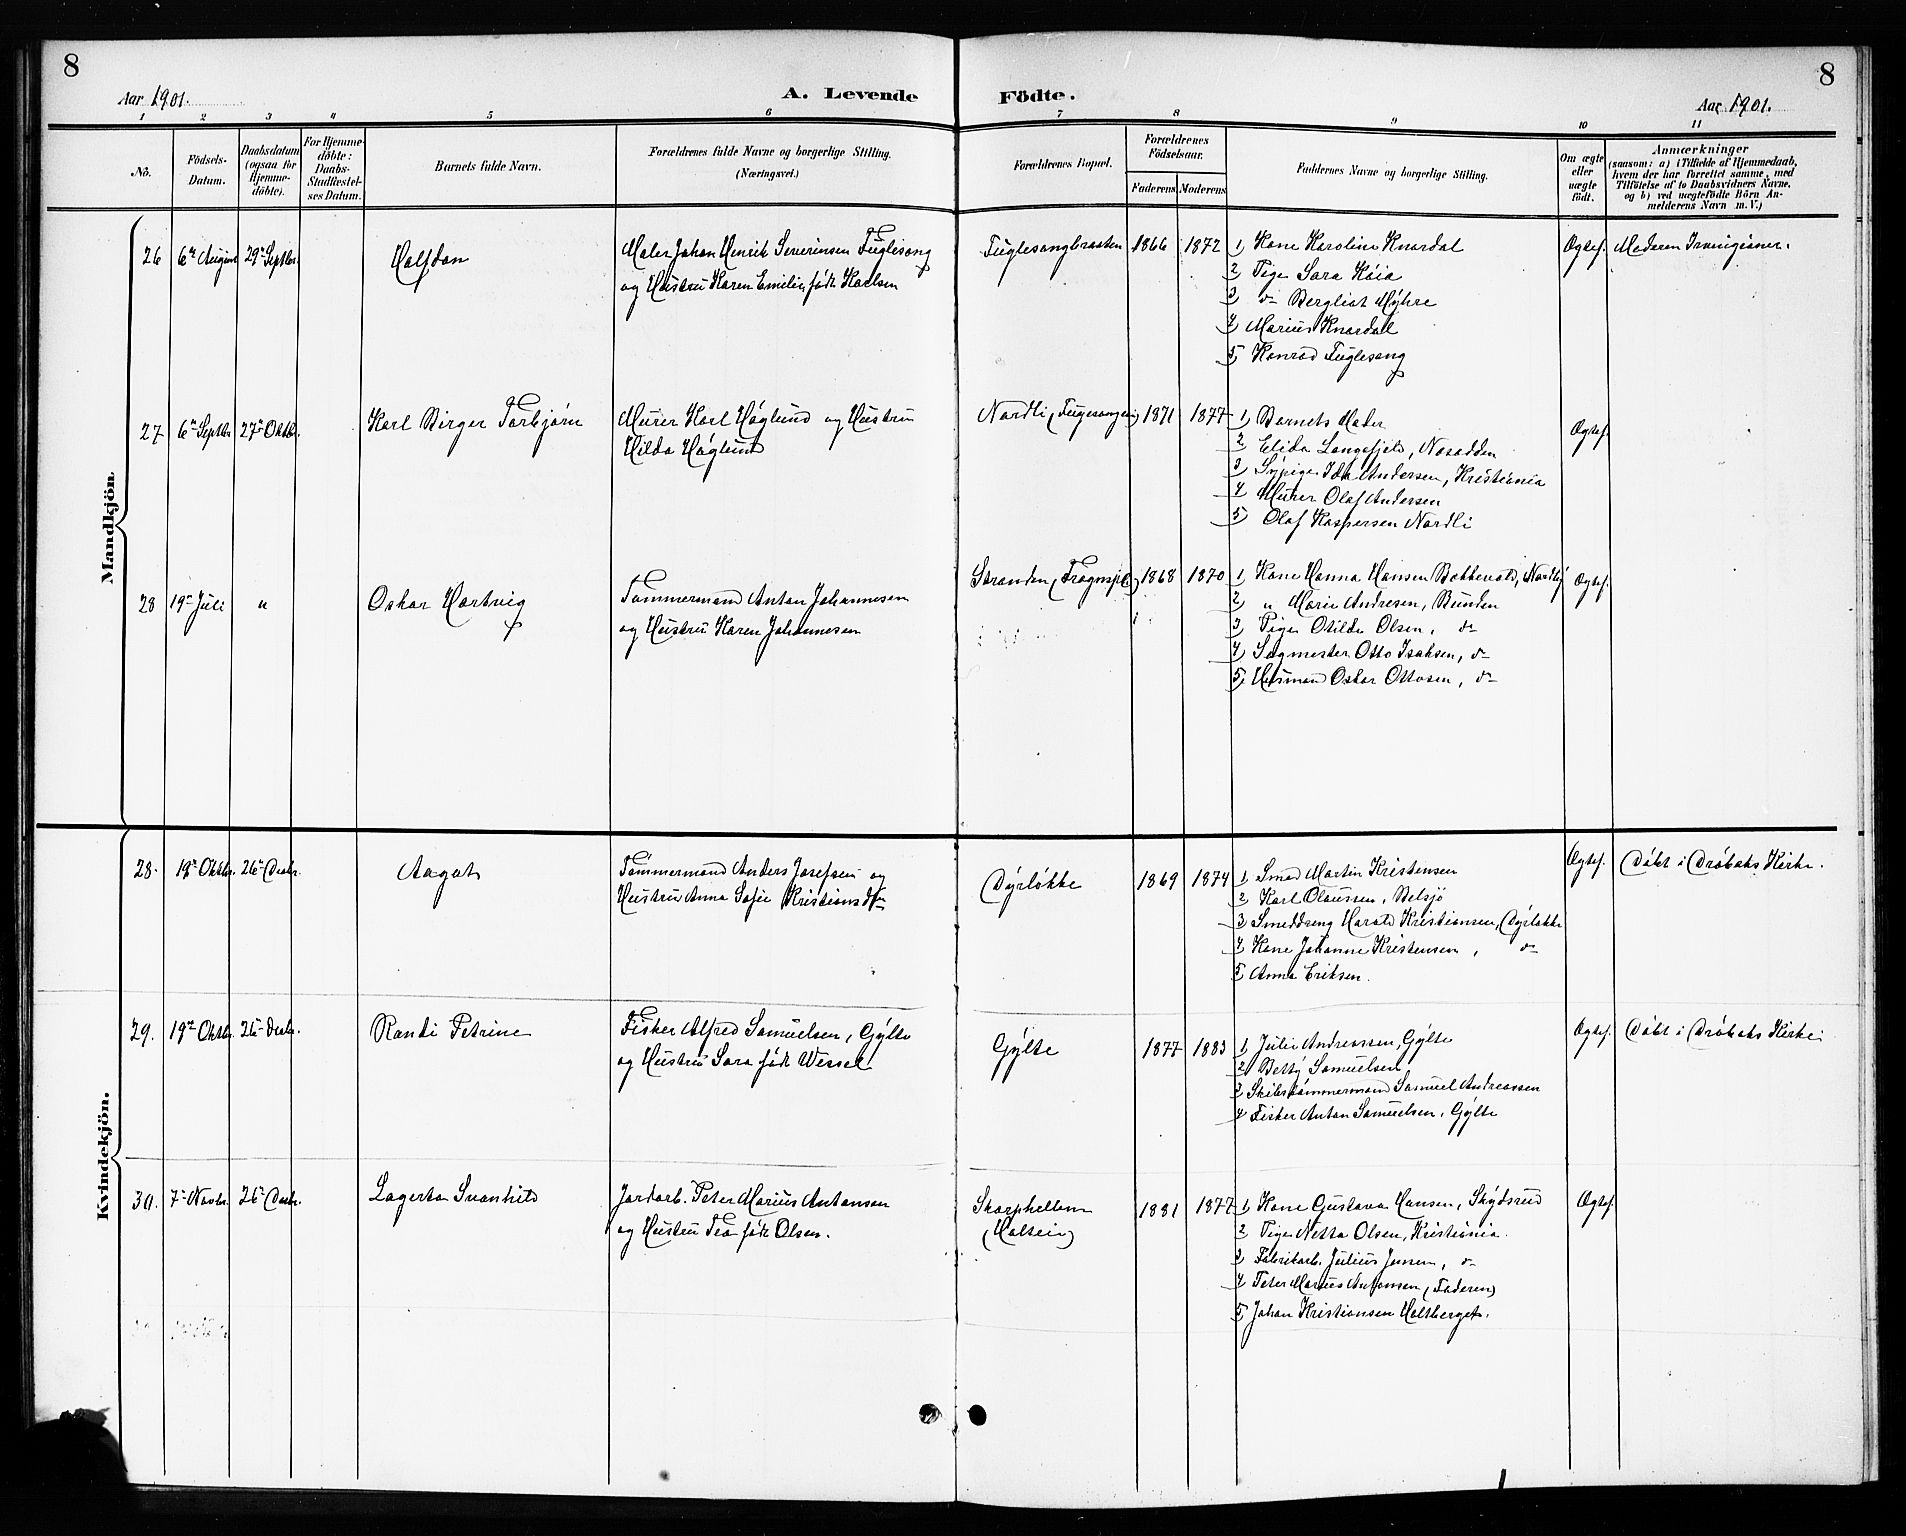 8
8
Aar 1901.
A. Levende
Födte.
Aar 1901.
1 2 3 4 5 6 7 8 9 10 11
No.
Födsels-
Datum.
Daabsdatum
(ogsaa for
Hjemme-
döbte).
For Hjemme-
döbte:
Daabs-
Stadfæstel-
ses Datum.
Barnets fulde Navn.
Forældrenes fulde Navne og borgerlige Stilling.
(Næringsvei.)
Forældrenes Bopæl.
Forældrenes
Födselsaar.
Faderens Moderens
Faddernes Navne og borgerlige Stilling.
Om ægte
eller
uægte
födt.
Anmærkninger
(saasom: a) i Tilfælde af Hjemmedaab,
hvem der har forrettet samme, med
Tilföielse af to Daabsvidners Navne,
og b) ved uægtefödte Börn An-
melderens Navn m. V.)
Mandkjön.
26 6te August 29de Septbr.
Halfdan
Maler Johan Henrik Severinsen Fuglesang
og Hustru Karen Emilie født Karlsen
Fuglesangbraaten 1866 1872
1) Kone Karoline Knardal
2) Pige Sara Kaia
3) do Bergliot Myhre
4) Marius Knardal
5) Konrad Fuglesang
Ægtef. Moderen Irvingianer.
27 6te Septbr. 27de Oktbr.
Karl Birger Torbjørn
Murer Karl Høglund og Hustru
Hilda Høglund
Nordli (Fuglesangen) 1871 1877
1) Barnets Moder
2) Elida Langefjeld, Nesodden
3) Sypige Ida Andersen, Kristiania
4) Murer Olaf Andersen
5) Olaf Kaspersen Nordli
Ægtef.
28 19de Juli "
Oskar Hartvig
Tømmermand Anton Johannesen
og Hustru Karen Johannesen
Stranden 1868 1870
1) Kone Hanna Hansen Nordby
2) " Marie Andresen, Bunden
3) Pige Otilde Olsen, do
4) Sagmester Otto Isaksen, do
5) Herman Oskar Ottosen, do
Ægtef.
Kvindekjön.
28. 19de Oktbr. 26de Decbr.
Aagot
Tømmermand Anders Josefsen og
Hustru Anna Sofie Kristiansdtr
Dyrløkke 1869 1874
1) Smed Martin Kristensen
2) Karl Olaussen, Belsjø
3) Smeddreng Harald Kristiansen, Dyrløkke
4) Kone Johanne Kristensen, do
5) Anna Eriksen.
Ægtef. Døbt i Drøbaks Kirke.
29. 19de Oktbr. 26de Decbr.
Randi Petrine
Fisker Alfred Samuelsen, Gylte
og Hustru Sara født Wessel
Gylte 1877 1883
1) Julie Andreassen, Gylte
2) Betty Samuelsen
3) Skibstømmermand Samuel Andreassen
4) Fisker Anton Samuelsen, Gylte
Ægtef. Døbt i Drøbaks Kirke.
30. 7de Novbr. 26de Decbr.
Lagerta Svanhild
Jordarb. Peter Marius Antonsen
og Hustru Tea født Olsen.
Skorphellen
1881 1877
1) Kone Gustava Hansen, Skydsrud
2) Pige Netta Olsen, Kristiania.
3) Fabrikarb. Julius Jensen, do
4) Peter Marius Antonsen (Faderen)
5) Johan Kristiansen Holtberget.
Ægtef.